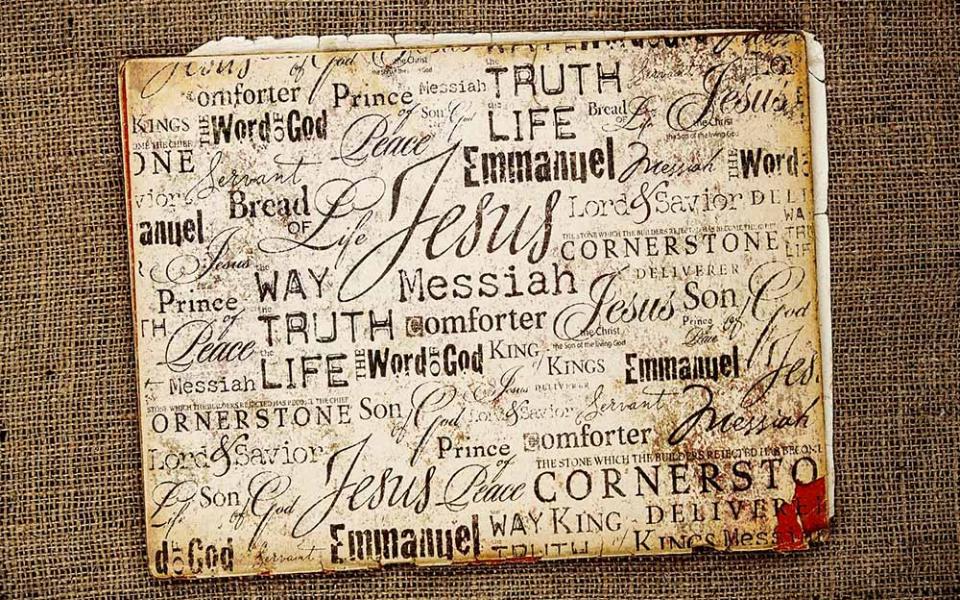 Jesus of God the Christ
omforter Prince Messiah TRUTH Servant
KINGS THE Word OF God of Peace Son of God LIFE Bread of Life Jesus the Christ
the Son of the living God
ONE Servant Emmanuel Messiah THE Word
vior Bread OF Life Jesus Lord & Savior DELI
anuel THE STONE WHICH THE BUILDERS REJECTED HAS BECOME THE WA
Jesus the WAY Messiah CORNERSTONE TR
DELIVERER LIF
Prince of Peace the TRUTH Comforter Jesus Son of God
TH the Christ Prince of Peace
the Son of the living God
Messiah the LIFE THE Word OF God KING of KINGS Emmanuel Jes
STONE WHICH THE BUILDERS REJECTED HAS BECOME THE CHIEF Jesus DELIVERER
ORNERSTONE Son of God Lord & Savior Servant Messiah
Lord & Savior Prince of Peace Comforter
THE STONE WHICH THE BUILDERS REJECTED HAS BECOME
Life Son of God Jesus CORNERSTO
d OF God Servant Emmanuel WAY KING of KINGS DELIVERE
TRUTH Mess